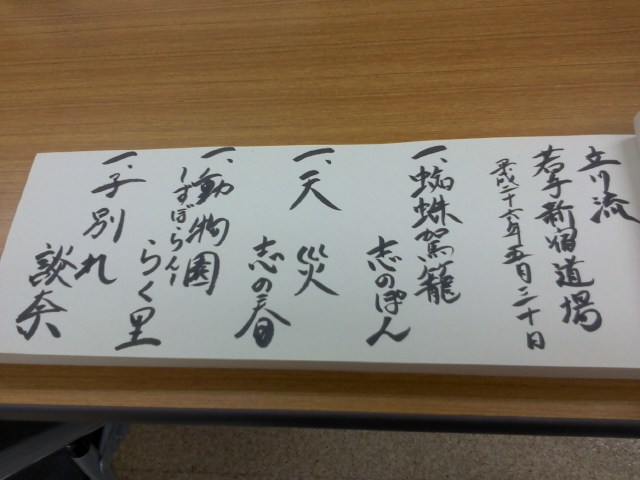 立川流
若手新宿道場
平成二十六年五月三十日
一、蜘蛛駕籠
志のぽん
一、天災
志の春
一、動物園
しずばらんー
らく里
一、子別れ
談奈